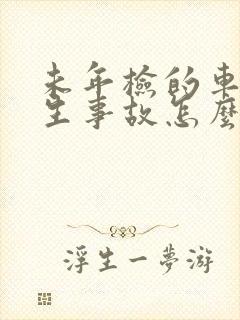 未年檢的車
生事故怎麼
浮生一夢游